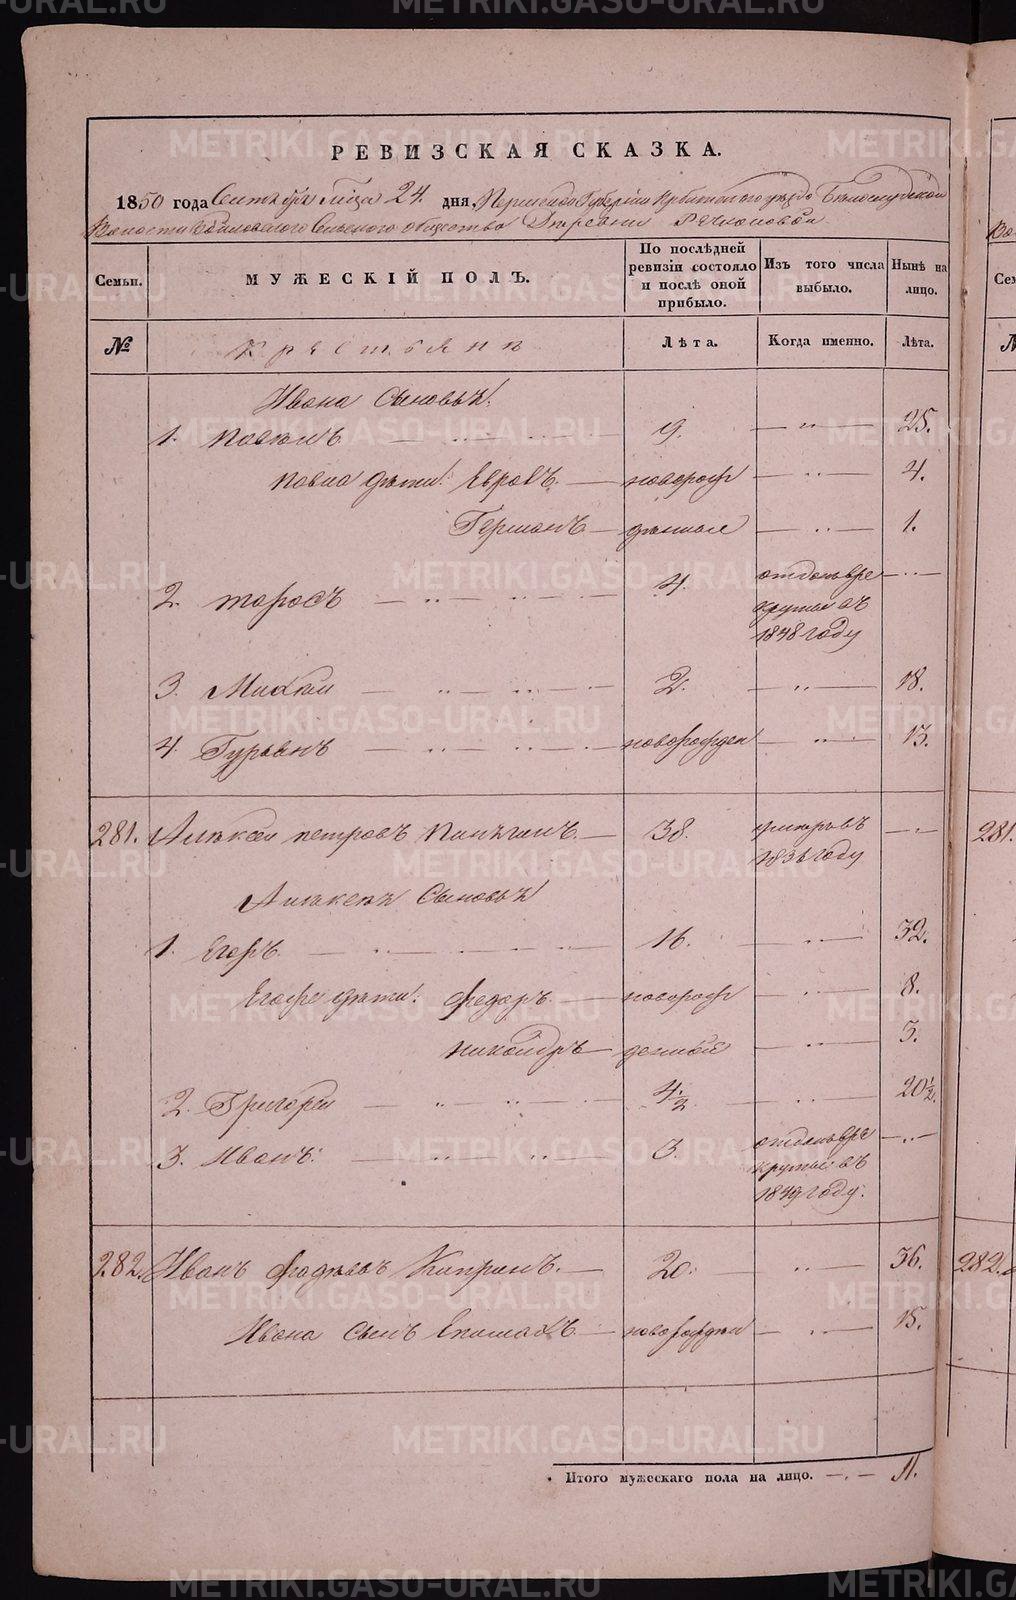 РЕВИЗСКАЯ СКАЗКА.
1850 года Сентября м͠ца 24 дня, Пермской Губернии Ирбитского уезда Белослудской
Волости Сельского общества Деревни
Семьи. МУЖЕСКІЙ ПОЛЪ. По послѣдней ревизіи состояло и послѣ оной прибыло. Изъ того числа выбыло. Нынѣ на лицо.
№ Крестьяне Лѣта. Когда именно. Лѣта.
Ивана Сыновья:
1. 9. — „ — 25.
дети: — новорож — „ — 4.
Германъ — денные — „ — 1.
2. Тарасъ — „ — 4. отдан в ре
круты въ
1848 году — „ —
3. Михаил — „ — 2. — „ — 18.
4. Гурьянъ — „ — новорожден — „ — 13.
281. Алексей Петровъ — 38. умеръ въ
183 году — „ —
Алексея Сыновья
1. Егоръ — „ — 16. — „ — 32.
Егора дети: Федоръ — новорож — „ — 8.
Никандръ — денные — „ — 5.
2. Григорий — „ — 4½ — „ — 20½.
3. Иванъ: — „ — 3. отдан в ре
круты въ
1849 году. — „ —
282. Иванъ Фадеевъ — 20. — „ — 36.
Ивана сынъ — новорожден — „ — 15.
Итого мужескаго пола на лицо. — „ — 11.
281.
282.
METRIKI.GASO-URAL.RU